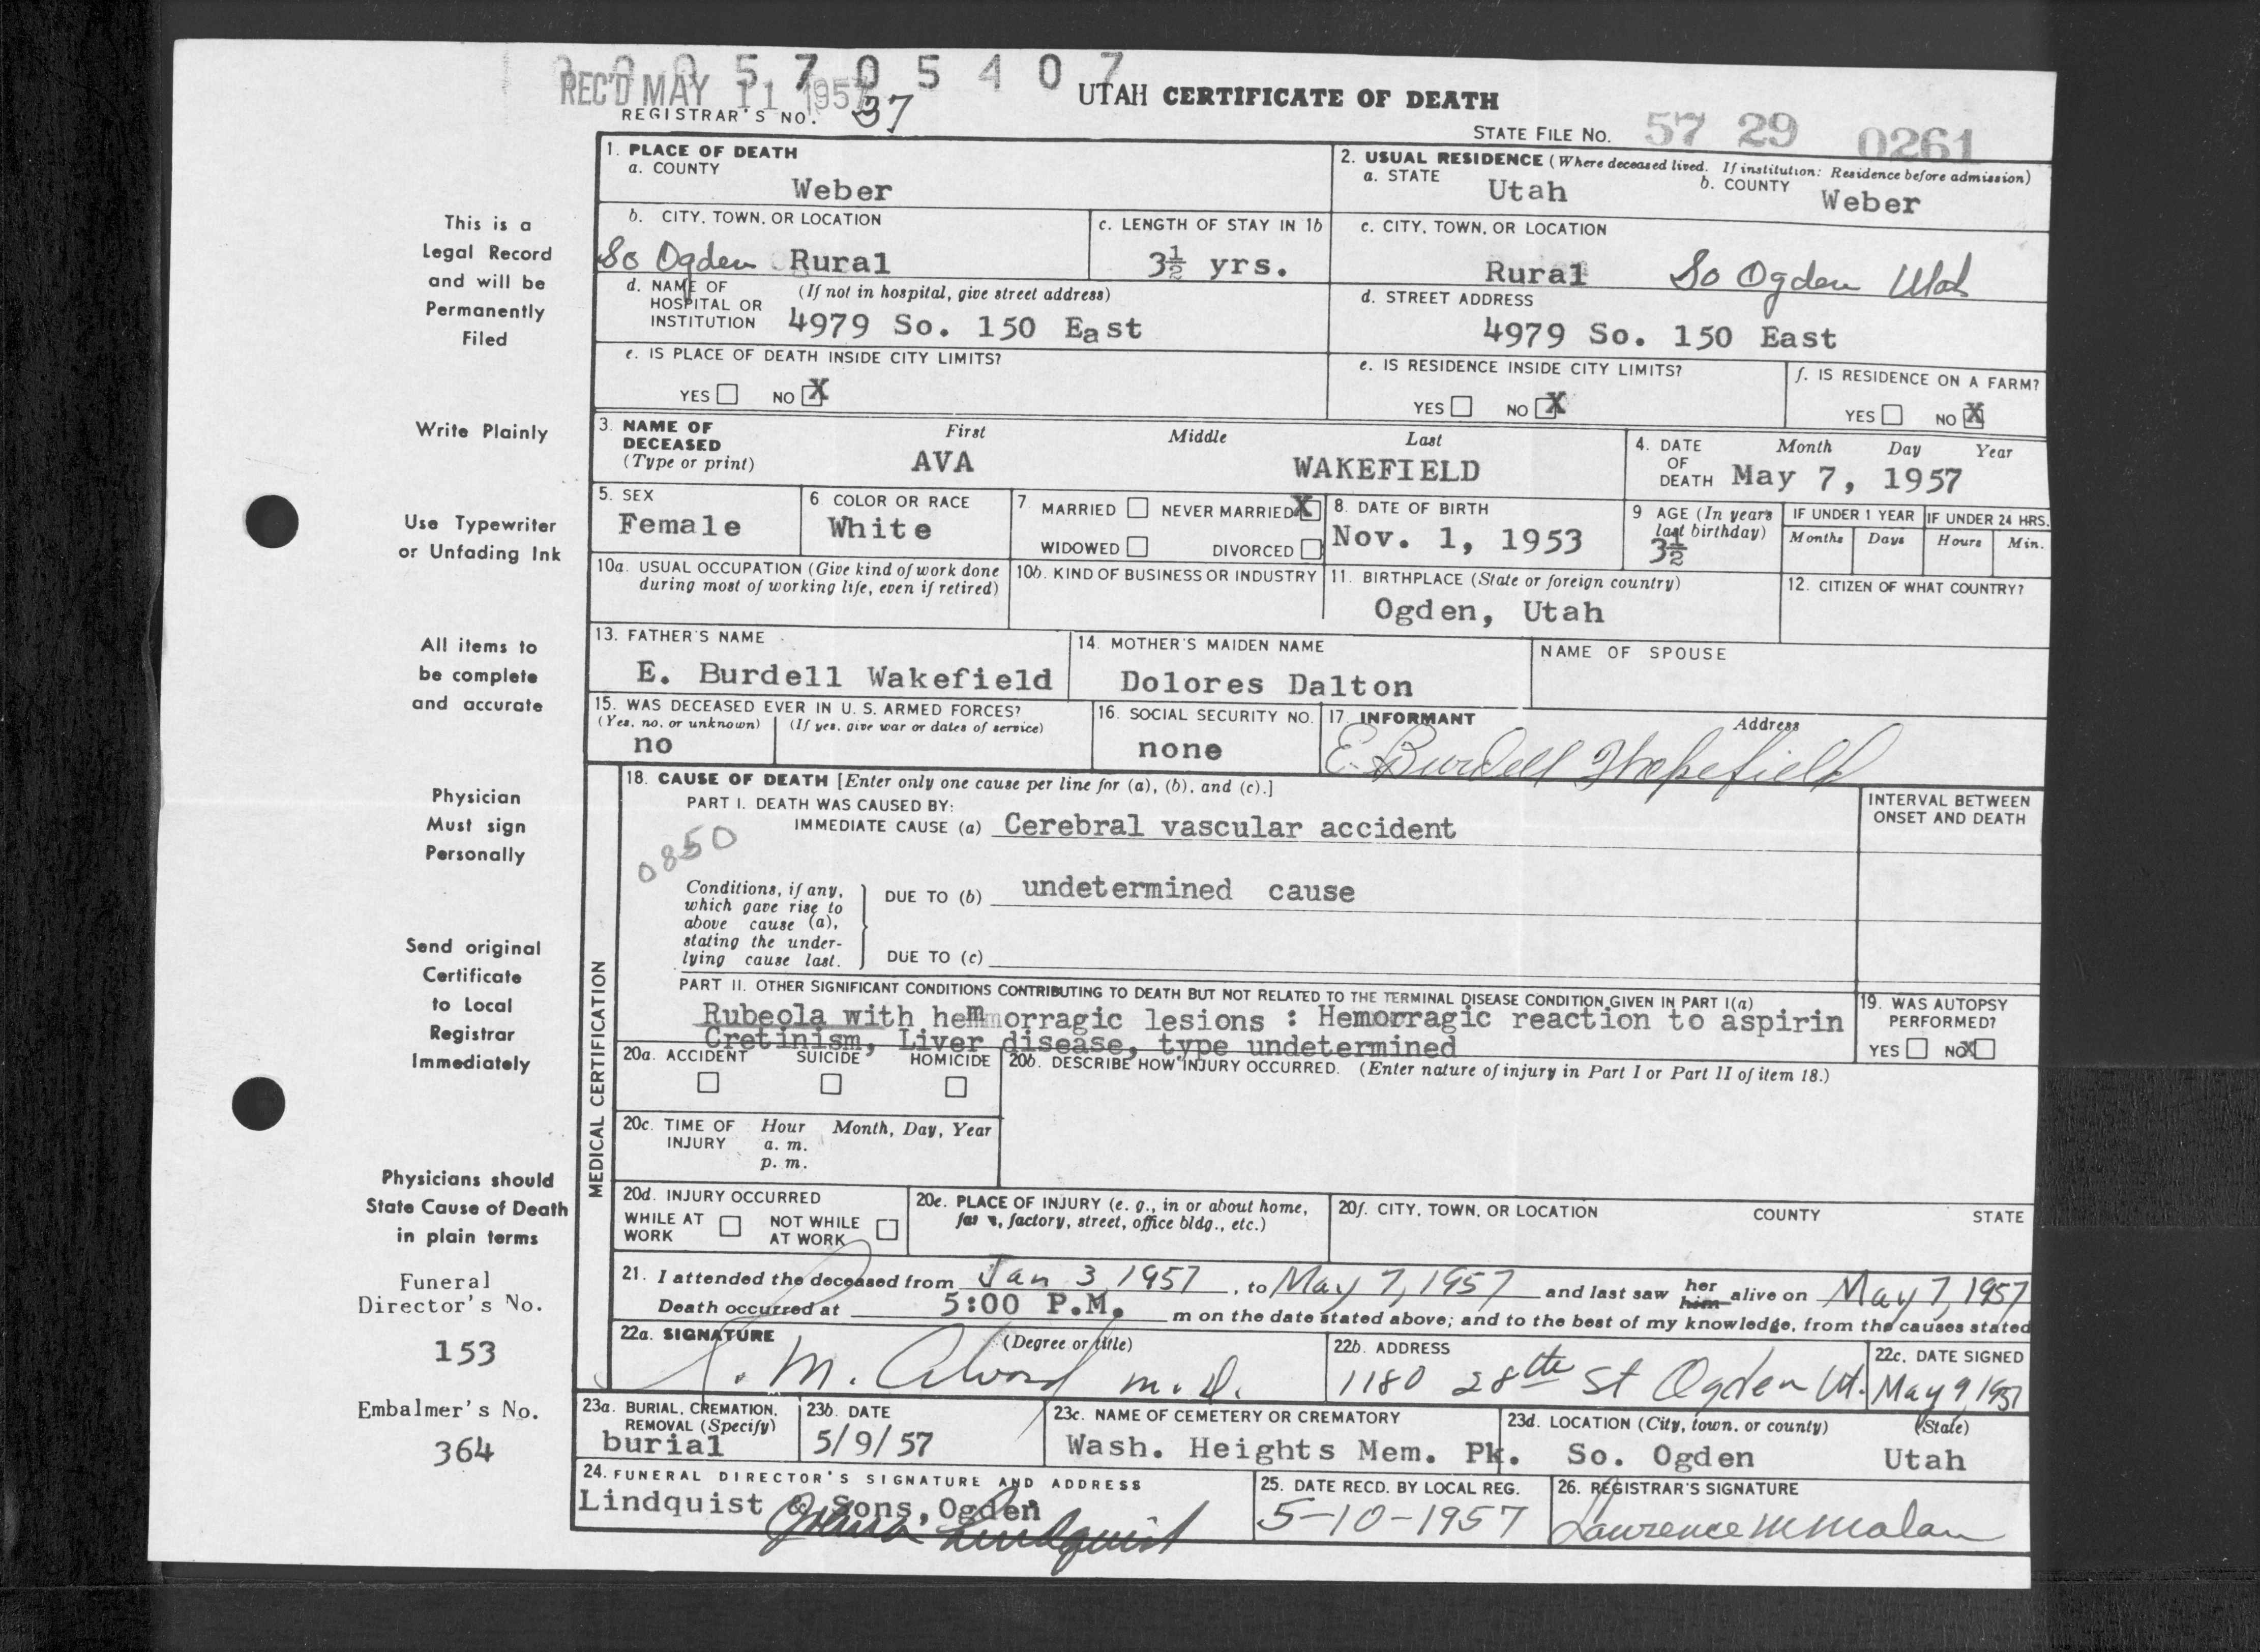 5 7 0 5 4 0 7
REC'D MAY 11 1957
REGISTRAR'S NO. 37
UTAH CERTIFICATE OF DEATH
STATE FILE NO. 57 29 0261
This is a
Legal Record
and will be
Permanently
Filed
Write Plainly
Use Typewriter
or Unfading Ink
All items to
be complete
and accurate
Physician
Must sign
Personally
Send original
Certificate
to Local
Registrar
Immediately
Physicians should
State Cause of Death
in plain terms
Funeral
Director's No.
153
Embalmer's No.
364
1. PLACE OF DEATH
a. COUNTY
Weber
2. USUAL RESIDENCE (Where deceased lived. If institution: Residence before admission)
a. STATE Utah b. COUNTY Weber
b. CITY, TOWN, OR LOCATION
So Ogden Rural
c. LENGTH OF STAY IN 1b
3½ yrs.
c. CITY, TOWN, OR LOCATION
Rural So Ogden Utah
d. NAME OF HOSPITAL OR INSTITUTION (If not in hospital, give street address)
4979 So. 150 East
d. STREET ADDRESS
4979 So. 150 East
e. IS PLACE OF DEATH INSIDE CITY LIMITS?
YES NO X
e. IS RESIDENCE INSIDE CITY LIMITS?
YES NO X
f. IS RESIDENCE ON A FARM?
YES NO X
3. NAME OF DECEASED (Type or print)
First Middle Last
AVA WAKEFIELD
4. DATE OF DEATH Month Day Year
May 7, 1957
5. SEX
Female
6 COLOR OR RACE
White
7 MARRIED NEVER MARRIED X
WIDOWED DIVORCED
8. DATE OF BIRTH
Nov. 1, 1953
9 AGE (In years last birthday)
3½
IF UNDER 1 YEAR IF UNDER 24 HRS.
Months Days Hours Min.
10a. USUAL OCCUPATION (Give kind of work done during most of working life, even if retired)
10b. KIND OF BUSINESS OR INDUSTRY
11. BIRTHPLACE (State or foreign country)
Ogden, Utah
12. CITIZEN OF WHAT COUNTRY?
13. FATHER'S NAME
E. Burdell Wakefield
14. MOTHER'S MAIDEN NAME
Dolores Dalton
NAME OF SPOUSE
15. WAS DECEASED EVER IN U. S. ARMED FORCES?
(Yes, no, or unknown) (If yes, give war or dates of service)
no
16. SOCIAL SECURITY NO.
none
17. INFORMANT Address
E. Burdell Wakefield
MEDICAL CERTIFICATION
18. CAUSE OF DEATH [Enter only one cause per line for (a), (b), and (c).]
PART I. DEATH WAS CAUSED BY:
IMMEDIATE CAUSE (a) Cerebral vascular accident
0850
INTERVAL BETWEEN
ONSET AND DEATH
Conditions, if any,
which gave rise to
above cause (a),
stating the under-
lying cause last.
DUE TO (b) undetermined cause
DUE TO (c)
PART II. OTHER SIGNIFICANT CONDITIONS CONTRIBUTING TO DEATH BUT NOT RELATED TO THE TERMINAL DISEASE CONDITION GIVEN IN PART I(a)
Rubeola with hemmorragic lesions : Hemorragic reaction to aspirin
Cretinism, Liver disease, type undetermined
19. WAS AUTOPSY
PERFORMED?
YES NO X
20a. ACCIDENT SUICIDE HOMICIDE
20b. DESCRIBE HOW INJURY OCCURRED. (Enter nature of injury in Part I or Part II of item 18.)
20c. TIME OF INJURY Hour Month, Day, Year
a. m.
p. m.
20d. INJURY OCCURRED
WHILE AT WORK NOT WHILE AT WORK
20e. PLACE OF INJURY (e. g., in or about home,
factory, street, office bldg., etc.)
20f. CITY, TOWN, OR LOCATION COUNTY STATE
21. I attended the deceased from Jan 3 1957, to May 7, 1957 and last saw her him alive on May 7, 1957
Death occurred at 5:00 P.M. m on the date stated above; and to the best of my knowledge, from the causes stated
22a. SIGNATURE (Degree or title)
M. m.D.
22b. ADDRESS
1180 28th St Ogden Ut.
22c. DATE SIGNED
May 9 1957
23a. BURIAL, CREMATION, REMOVAL (Specify)
burial
23b. DATE
5/9/57
23c. NAME OF CEMETERY OR CREMATORY
Wash. Heights Mem. Pk.
23d. LOCATION (City, town, or county) (State)
So. Ogden Utah
24. FUNERAL DIRECTOR'S SIGNATURE AND ADDRESS
Lindquist & Sons, Ogden
Lindquist
25. DATE RECD. BY LOCAL REG.
5-10-1957
26. REGISTRAR'S SIGNATURE
Lawrence M Malan